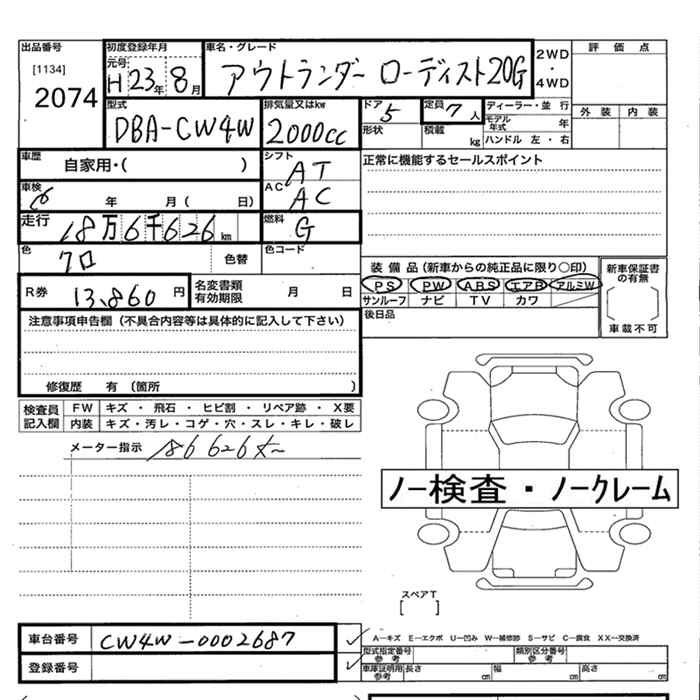 出品番号 初度登録年月 車名・グレード 2WD・4WD 評価点
[1134] 元号 H23年8月 アウトランダー ローディスト20G
2074 外装 内装
型式 排気量又はkw ドア 5 定員 7人 ディーラー・並行
DBA-CW4W 2000cc 形状 積載 kg モデル年式 年
ハンドル 左・右
車歴 自家用・( ) シフト AT 正常に機能するセールスポイント
車検 年 月( 日) AC AC
走行 18万6千626km 燃料 G
色 クロ 色替 色コード
装備品(新車からの純正品に限り○印) 新車保証書の有無
R券 13,860円 名変書類有効期限 月 日 PS PW ABS エアB アルミW
サンルーフ ナビ TV カワ
注意事項申告欄(不具合内容等は具体的に記入して下さい) 後日品 車載不可
修復歴 有(箇所 )
検査員記入欄 FW キズ・飛石・ヒビ割・リペア跡・X要
内装 キズ・汚レ・コゲ・穴・スレ・キレ・破レ
メーター指示 186626
ノー検査・ノークレーム
スペアT
[ ]
車台番号 CW4W-0002687 A—キズ E—エクボ U—凹み W—補修跡 S—サビ C—腐食 XX—交換済
型式指定番号 参考 類別区分番号 参考
登録番号 車庫証明用参考 長さ cm 幅 cm 高さ cm